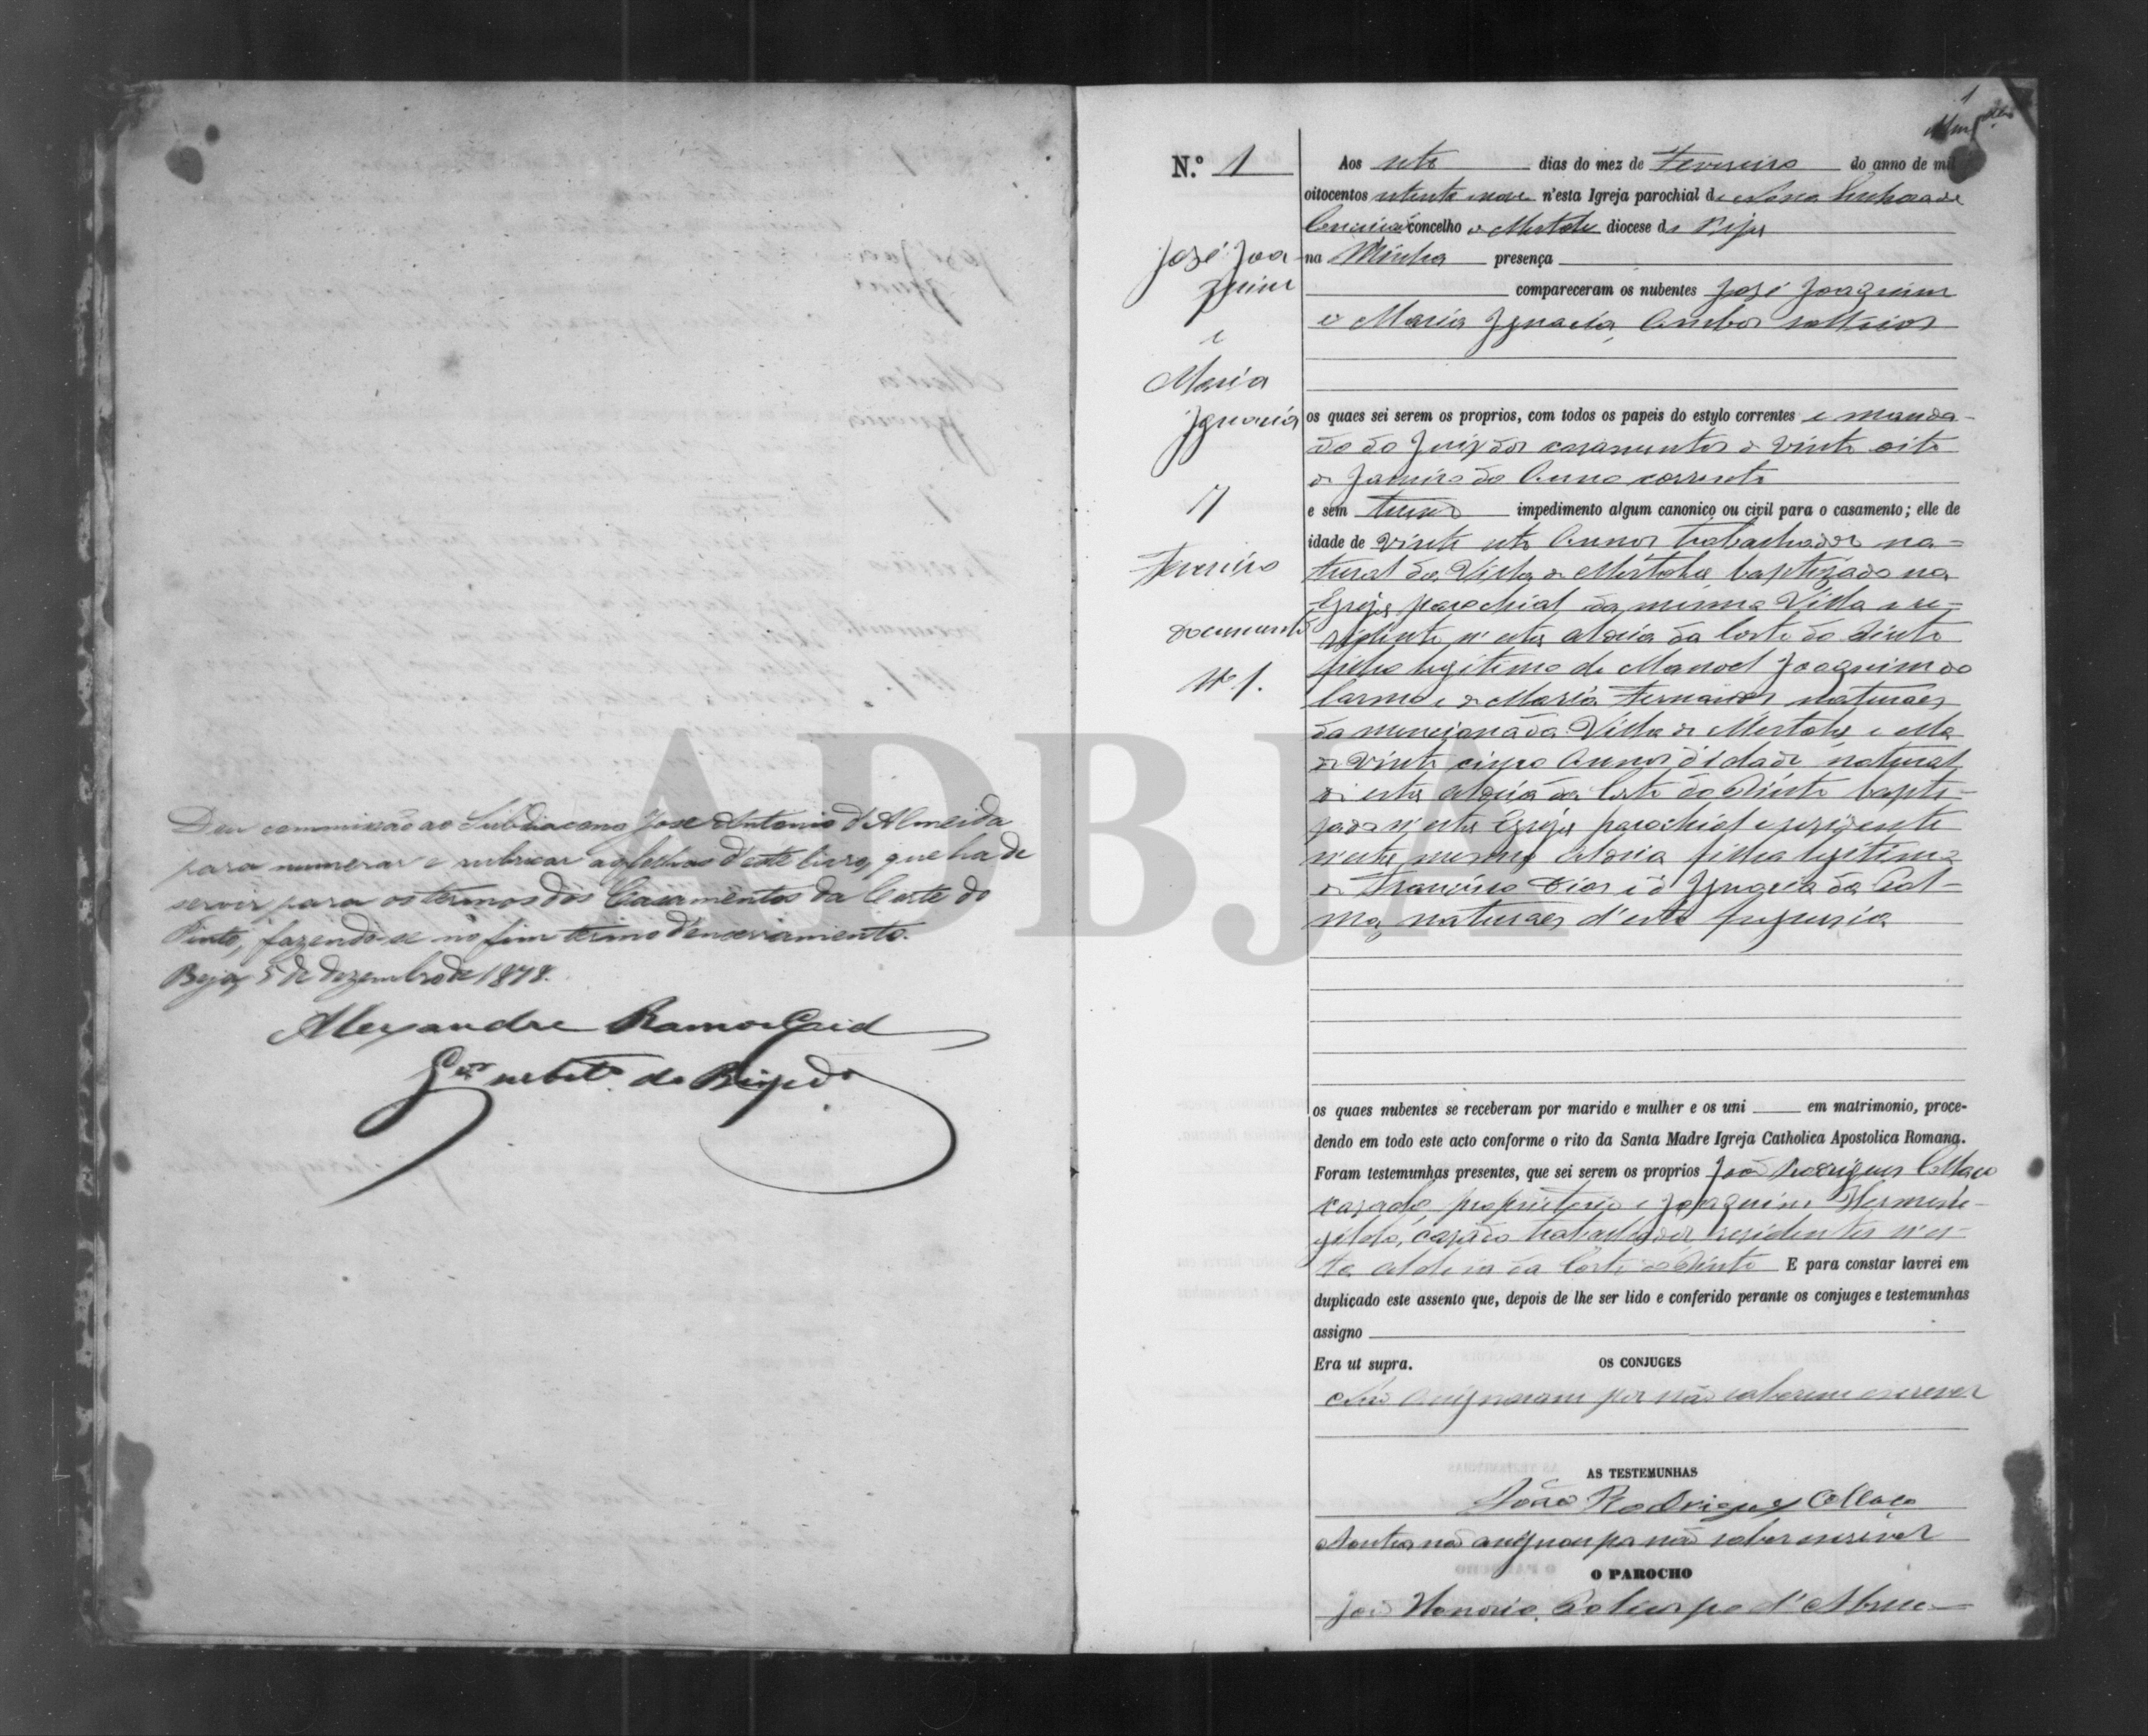 Dou commissão ao Subdiacono José Antonio d'Almeida
para numerar e rubricar as folhas d'este livro, que ha de
servir para os termos dos Casamentos da Corte do
Pinto, fazendo-se no fim termo d'encerramento.
Beja, 5 de Dezembro de 1878.
Alexandre Ramos Cid
do Bispado
1
N.º 1
José Joa-
quim
e
Maria
Ignacia
7
Fevereiro
Documento
Nº 1.
Aos sete dias do mez de Fevereiro do anno de mil
oitocentos setenta nove n'esta Igreja parochial de Nossa Senhora da
Conceição concelho de Mertola diocese de Beja
na Minha presença
compareceram os nubentes José Joaquim
e Maria Ignacia, Ambos solteiros
os quaes sei serem os proprios, com todos os papeis do estylo correntes e manda-
do do Juiz dos casamentos de vinte oito
de Janeiro do Anno corrente
e sem impedimento algum canonico ou civil para o casamento; elle de
idade de vinte sete Annos trabalhador na-
tural da Villa de Mertola, baptizado na
Egreja parochial da mesma Villa e re-
zidente n'esta aldeia da Corte do Pinto
filho legitimo de Manoel Joaquim do
Carmo e de Maria Fernandes naturaes
da mencionada Villa de Mertola, e ella
de vinte cinco Annos d'idade, natural
d'esta aldeia da Corte do Pinto bapti-
zada n'esta Egreja parochial e rezidente
n'esta mesma aldeia filha legitima
de Francisco Dias e d'Ignacia da Pal-
ma, naturaes d'esta freguezia
os quaes nubentes se receberam por marido e mulher e os uni em matrimonio, proce-
dendo em todo este acto conforme o rito da Santa Madre Igreja Catholica Apostolica Romana.
Foram testemunhas presentes, que sei serem os proprios João Rodrigues Collaço
cazado, proprietario e Joaquim Hermene-
gildo, cazado trabalhador, rezidentes n'es-
ta aldeia da Corte do Pinto E para constar lavrei em
duplicado este assento que, depois de lhe ser lido e conferido perante os conjuges e testemunhas
assigno
Era ut supra.
OS CONJUGES
Não assignaram por não saberem escrever
AS TESTEMUNHAS
João Rodrigues Collaço
A outra não assignou por não saber escrever
O PAROCHO
João Honorio Policarpo d'Abreu
ADBJA